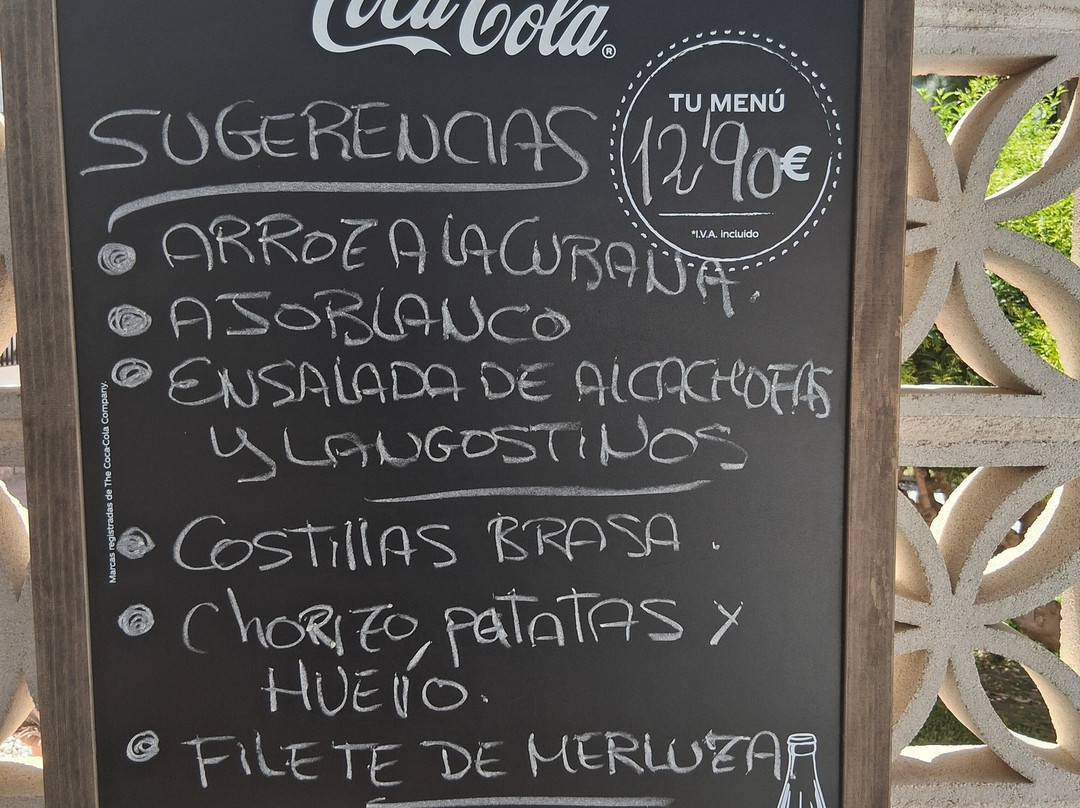 Coca-Cola®
TU MENÚ
12'90€
*I.V.A. incluido
SUGERENCIAS
ARROZ A LA CUBANA.
AJOBLANCO
ENSALADA DE ALCACHOFAS
Y LANGOSTINOS
COSTIllAS BRASA.
ChORIZO, pATATAS y
HUEVO.
FILETE DE MERLUZA
Marcas registradas de The Coca-Cola Company.